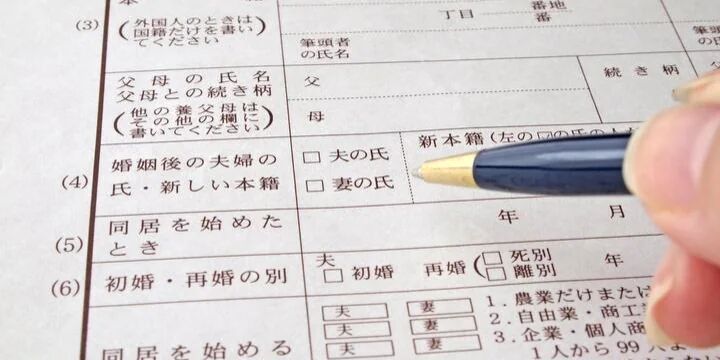 (3)
(外国人のときは
国籍だけを書い
てください)
丁目
番地
番
筆頭者
の氏名
父母の氏名
父母との続き柄
(他の養父母は
その他の欄に
書いてください)
父
母
続き柄
(4)
婚姻後の夫婦の
氏・新しい本籍
□ 夫の氏
□ 妻の氏
新本籍(左の☑の氏の人
(5)
同居を始めた
とき
年 月
(6)
初婚・再婚の別
夫
□ 初婚 再婚(□ 死別
□ 離別
年
同居を始める
夫 妻
夫 妻
夫 妻
1. 農業だけまたは
2. 自由業・商工
3. 企業・個人商
人から99人